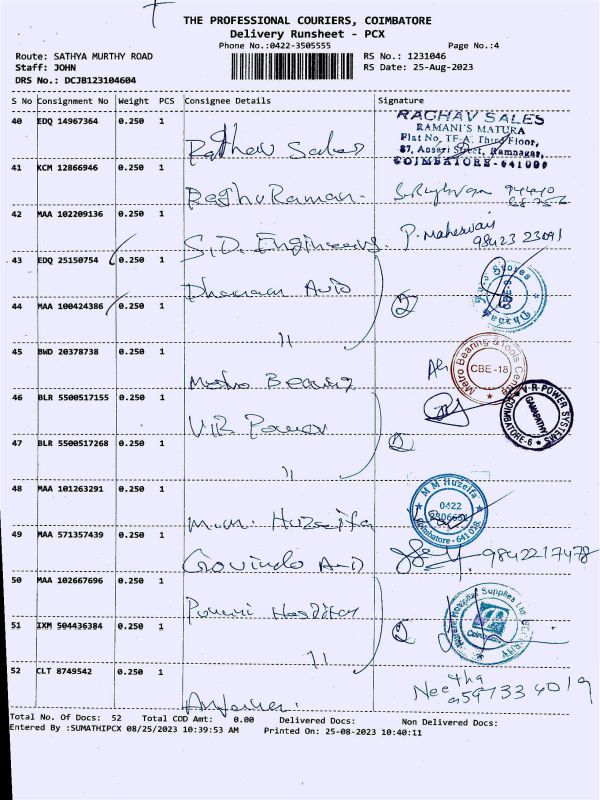 THE PROFESSIONAL COURIERS, COIMBATORE
Delivery Runsheet - PCX
Phone No.:0422-3505555 Page No.:4
Route: SATHYA MURTHY ROAD RS No.: 1231046
Staff: JOHN RS Date: 25-Aug-2023
DRS No.: DCJB123104604
S No Consignment No Weight PCS Consignee Details Signature
40 EDQ 14967364 0.250 1
Raghav Sales
RAGHAV SALES
RAMANI'S MATURA
Flat No. TF-A, Third Floor,
87, Ansari Street, Ramnagar,
COIMBATORE - 641009
41 KCM 12866946 0.250 1
Raghu Raman.
42 MAA 102209136 0.250 1
S.D. Engineers. P. Maheswari
98423 23091
43 EDQ 25150754 0.250 1
Auto
Stores
CBE-9
44 MAA 100424386 0.250 1
"
45 BWD 20378738 0.250 1
Metro Bearing
Metro Bearing & Tools Centre
CBE -18
46 BLR 5500517155 0.250 1
V.R. Power
V-R-POWER SYSTEMS
GANAPATHY
COIMBATORE-6
47 BLR 5500517268 0.250 1
"
48 MAA 101263291 0.250 1
M.M. Huzeifa
M M Huzeifa
0422
Coimbatore - 641 038
49 MAA 571357439 0.250 1
Govinda 9842217478
50 MAA 102667696 0.250 1
Hospital Supplies
Coimbatore
51 IXM 504436384 0.250 1
"
52 CLT 8749542 0.250 1
Neetha
Total No. Of Docs: 52 Total COD Amt: 0.00 Delivered Docs: Non Delivered Docs:
Entered By :SUMATHIPCX 08/25/2023 10:39:53 AM Printed On: 25-08-2023 10:40:11